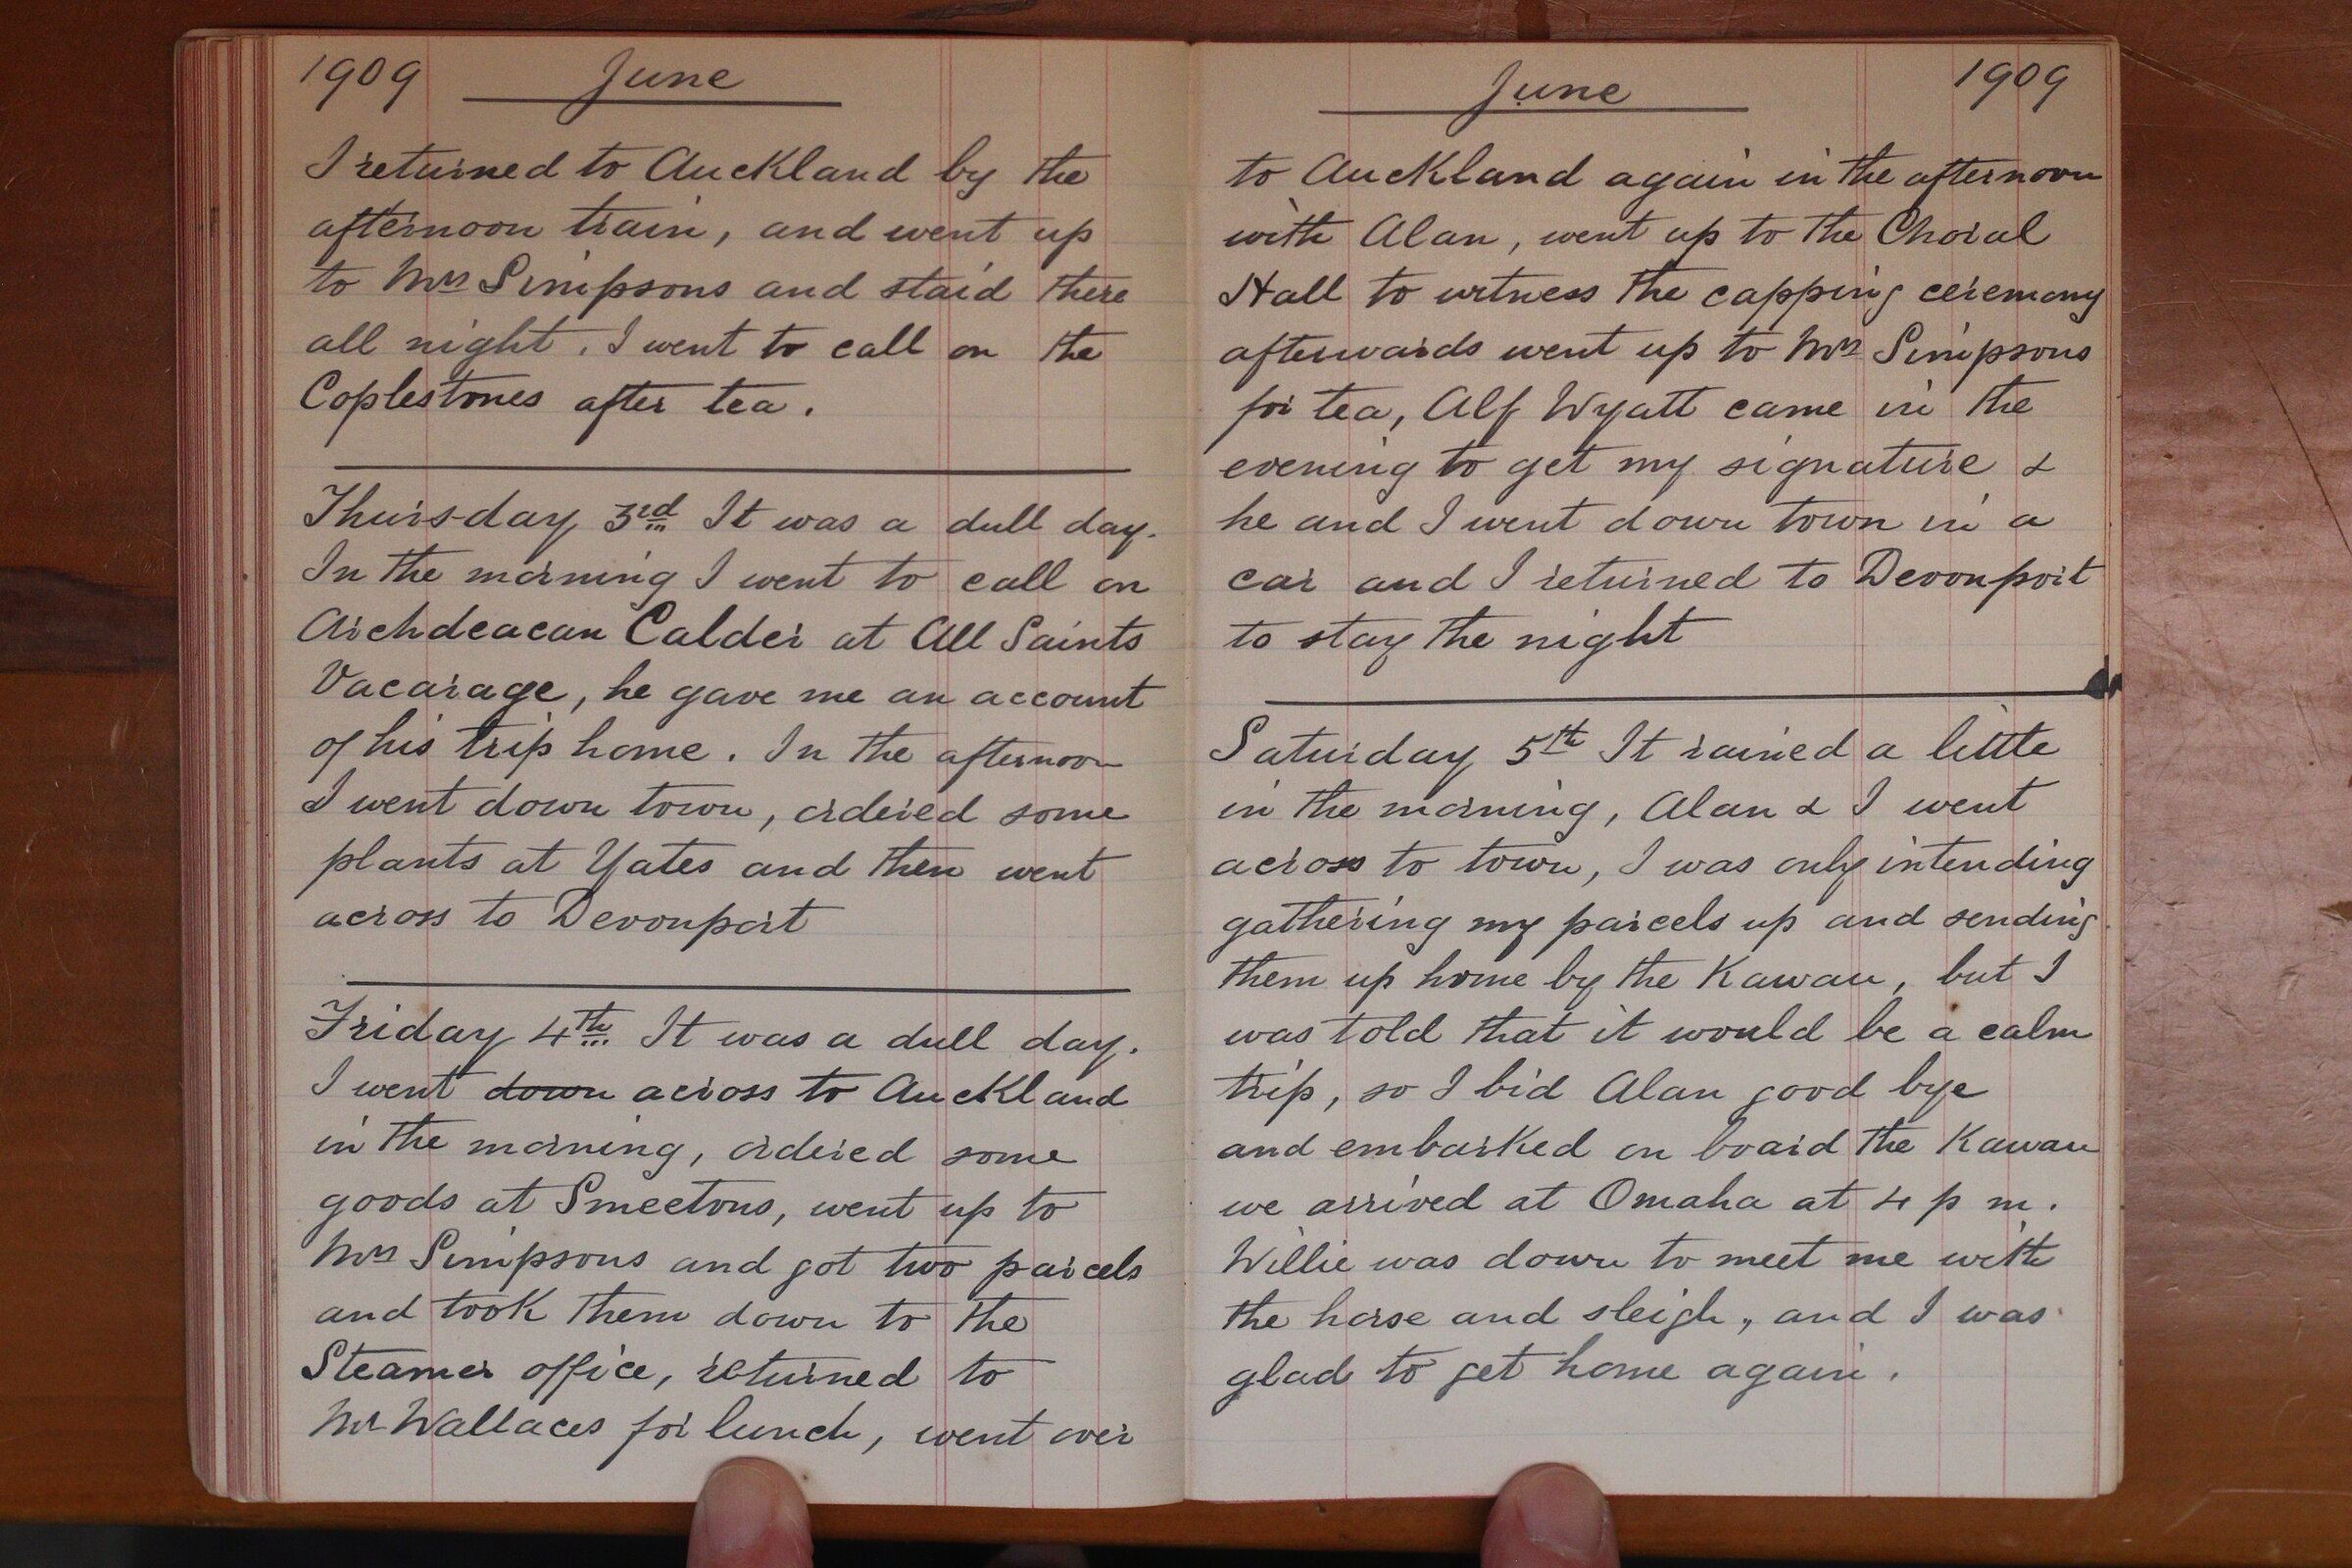 1909 June
I returned to Auckland by the
afternoon train, and went up
to Mrs Simpsons and staid there
all night. I went to call on the
Coplestones after tea.
Thursday 3rd It was a dull day.
In the morning I went to call on
Archdeacan Calder at All Saints
Vacarage, he gave me an account
of his trip home. In the afternoon
I went down town, ordered some
plants at Yates and then went
across to Devonport
Friday 4th It was a dull day.
I went down across to Auckland
in the morning, ordered some
goods at Smeetons, went up to
Mrs Simpsons and got two parcels
and took them down to the
Steamer office, returned to
Mr Wallaces for lunch, went over
June 1909
to Auckland again in the afternoon
with Alan, went up to the Choral
Hall to witness the capping ceremony
afterwards went up to Mrs Simpsons
for tea, Alf Wyatt came in the
evening to get my signature &
he and I went down town in a
car and I returned to Devonport
to stay the night
Saturday 5th It rained a little
in the morning, Alan & I went
across to town, I was only intending
gathering my parcels up and sending
them up home by the Kawau, but I
was told that it would be a calm
trip, so I bid Alan good bye
and embarked on board the Kawau
we arrived at Omaha at 4 p m.
Willie was down to meet me with
the horse and sleigh, and I was
glad to get home again.